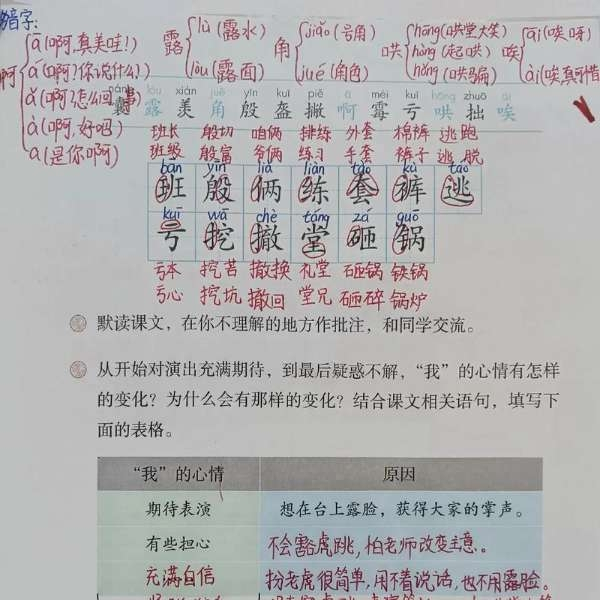 多音字:
啊
ā(啊,真美哇!)
á(啊?你说什么?)
ǎ(啊?怎么回事)
à(啊,好吧)
a(是你啊)
露
lù(露水)
lòu(露面)
角
jiǎo(号角)
jué(角色)
哄
hōng(哄堂大笑)
hòng(起哄)
hǒng(哄骗)
唉
āi(唉呀)
ài(唉真可惜
nǎng lòu xiàn jué yīn kuī piě ā méi kuī hōng zhuō ài
曩 露 羡 角 殷 盔 撇 啊 霉 亏 哄 拙 唉
班长 殷切 咱俩 排练 外套 棉裤 逃跑
班级 殷富 爷俩 练习 手套 裤子 逃脱
bān yīn liǎ liàn tào kù táo
班 殷 俩 练 套 裤 逃
kuī wā chè táng zá guō
亏 挖 撤 堂 砸 锅
亏本 挖苦 撤换 礼堂 砸锅 铁锅
亏心 挖坑 撤回 堂兄 砸碎 锅炉
默读课文，在你不理解的地方作批注，和同学交流。
从开始对演出充满期待，到最后疑惑不解，“我”的心情有怎样
的变化？为什么会有那样的变化？结合课文相关语句，填写下
面的表格。
“我”的心情 原因
期待表演 想在台上露脸，获得大家的掌声。
有些担心 不会豁虎跳,怕老师改变主意。
充满自信 扮老虎很简单,用不着说话,也不用露脸。